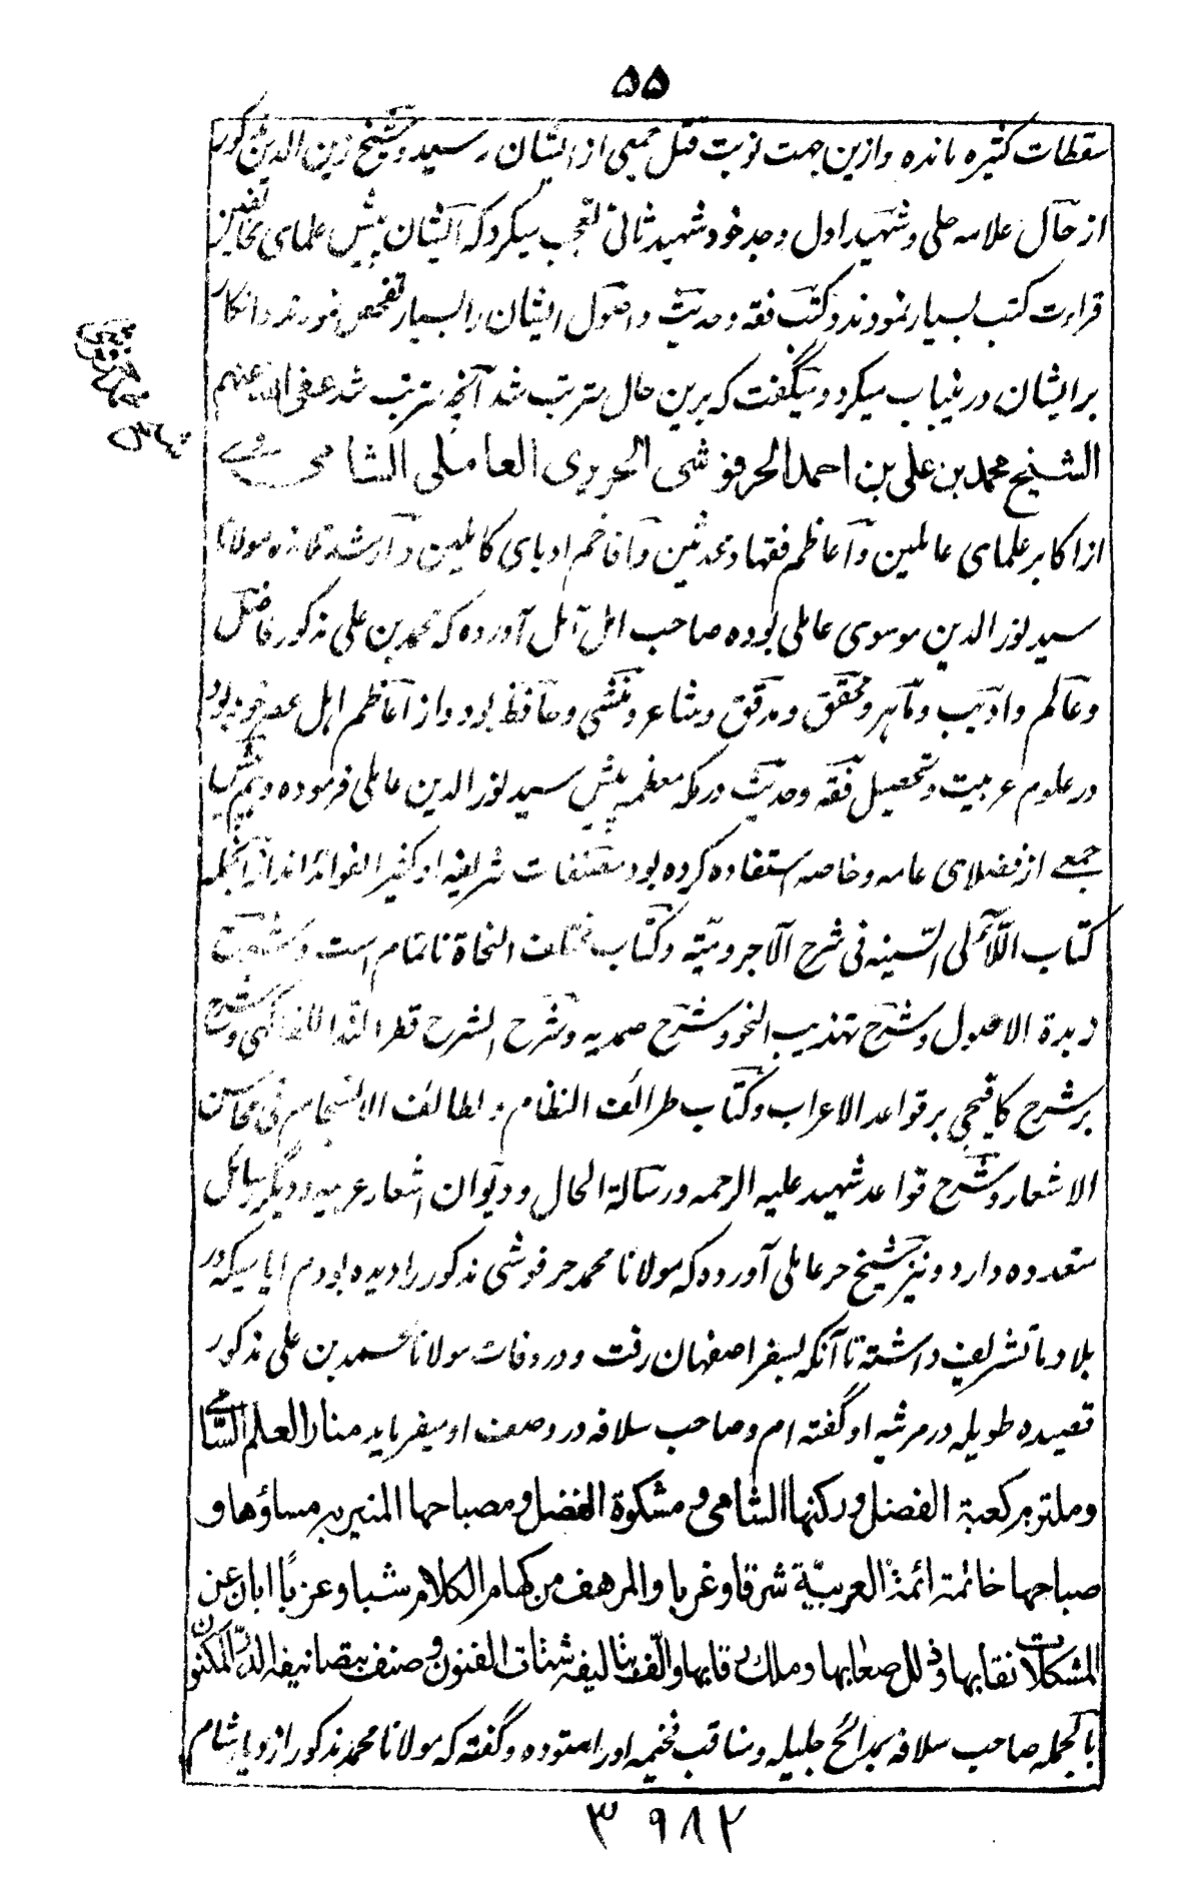 ۵۵
سقطات کثیره مانده وازین جهت نوبت قتل جمعی از ایشان رسید وشیخ زین الدین مذکور
از حال علامه حلی و شهید اول وجد خود شهید ثانی تعجب میکرد که ایشان پیش علمای مخالفین
قراءت کتب بسیار نمودند وکتب فقه وحدیث واصول ایشان را بسیار تفحص نمودند وانکار
بر ایشان درینباب میکرد ومیگفت که برین حال مترتب شد آنچه مترتب شد عفی الله عنهم
الشیخ محمد بن علی بن احمد الحرفوشی الحریری العاملی الشامی
از اکابر علمای عاملین واعاظم فقها ومحدثین وافاخم ادبای کاملین وارشد تلامذه مولانا
سید نور الدین موسوی عاملی بوده صاحب امل آمل آورده که محمد بن علی مذکور فاضل
وعالم وادیب وماهر ومحقق ومدقق وشاعر ومنشی وحافظ بود واز اعاظم اهل عصر خود بود
در علوم عربیت وتحصیل فقه وحدیث در مکه معظمه پیش سید نور الدین عاملی فرموده وهم پیش
جمعی از فضلای عامه وخاصه استفاده کرده بود مصنفات شریفه او کثیر الفوائد اند ازانجمله
کتاب اللآئی السنیه فی شرح الآجرومیّه وکتاب مختلف النحاة ناتمام است وشرح
زبدة الاصول وشرح تهذیب النحو وشرح صمدیه وشرح الشرح قطر الندا للفاکهی وشرح
بر شرح کافیجی بر قواعد الاعراب وکتاب طرائف النظام ولطائف الانسجام فی محاسن
الاشعار وشرح قواعد شهید علیه الرحمه ورسالة الحال ودیوان اشعار عربیه ودیگر رسائل
متعدده دارد ونیز شیخ حر عاملی آورده که مولانا محمد حرفوشی مذکور را دیده بودم ایامیکه در
بلاد ما تشریف داشته تا آنکه بسفر اصفهان رفت ودر وفات مولانا محمد بن علی مذکور
قصیده طویله در مرثیه او گفته ام وصاحب سلافه در وصف او میفرماید منار العلم السّامی
وملتزم کعبة الفضل ورکنها الشامی ومشکوة الفضل ومصباحها المنیر به مساؤها و
صباحها خاتمة ائمة العربیّة شرقا وغربا والمرهف من کهام الکلام شبا وغربًا ابان عن
المشکلات نقابها وذلل صعابها وملك رقابها والّف بتالیفه شتات الفنون وصنف بتصانیفه الدرّ المکنون
بالجمله صاحب سلافه بمدائح جلیله ومناقب فخیمه او را ستوده وگفته که مولانا محمد مذکور از دیار شام
۳ ۹۸۲